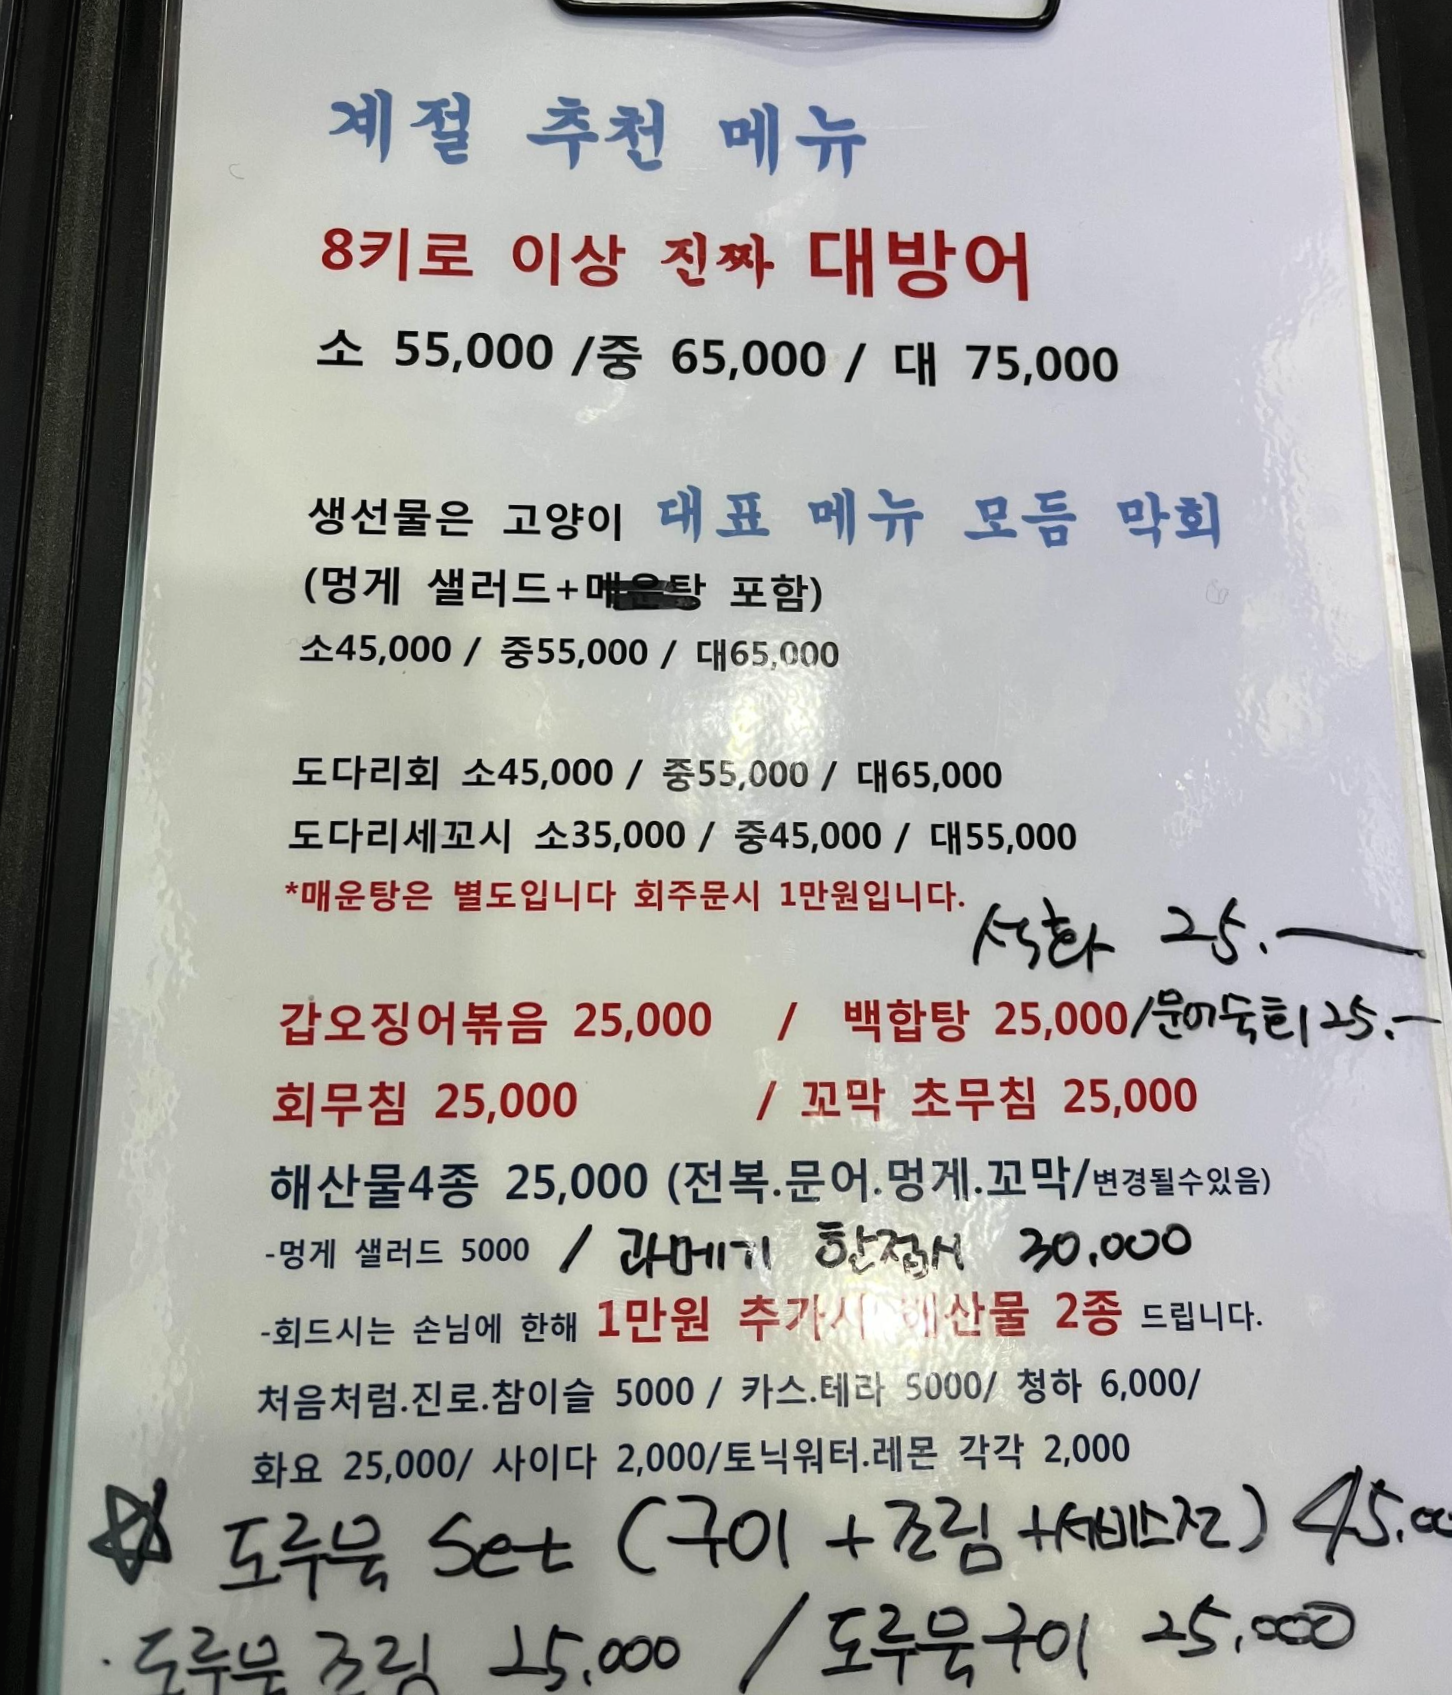 계절 추천 메뉴
8키로 이상 진짜 대방어
소 55,000 /중 65,000 / 대 75,000
생선물은 고양이 대표 메뉴 모듬 막회
(멍게 샐러드+매운탕 포함)
소45,000 / 중55,000 / 대65,000
도다리회 소45,000 / 중55,000 / 대65,000
도다리세꼬시 소35,000 / 중45,000 / 대55,000
*매운탕은 별도입니다 회주문시 1만원입니다.
석화 25.—
갑오징어볶음 25,000 / 백합탕 25,000/문어숙회 25.—
회무침 25,000 / 꼬막 초무침 25,000
해산물4종 25,000 (전복.문어.멍게.꼬막/변경될수있음)
-멍게 샐러드 5000 / 과메기 한접시 30.000
-회드시는 손님에 한해 1만원 추가시 해산물 2종 드립니다.
처음처럼.진로.참이슬 5000 / 카스.테라 5000/ 청하 6,000/
화요 25,000/ 사이다 2,000/토닉워터.레몬 각각 2,000
☆ 도루묵 Set (구이 +조림 +서비스전) 45.00
· 도루묵 조림 25.000 / 도루묵구이 25.000